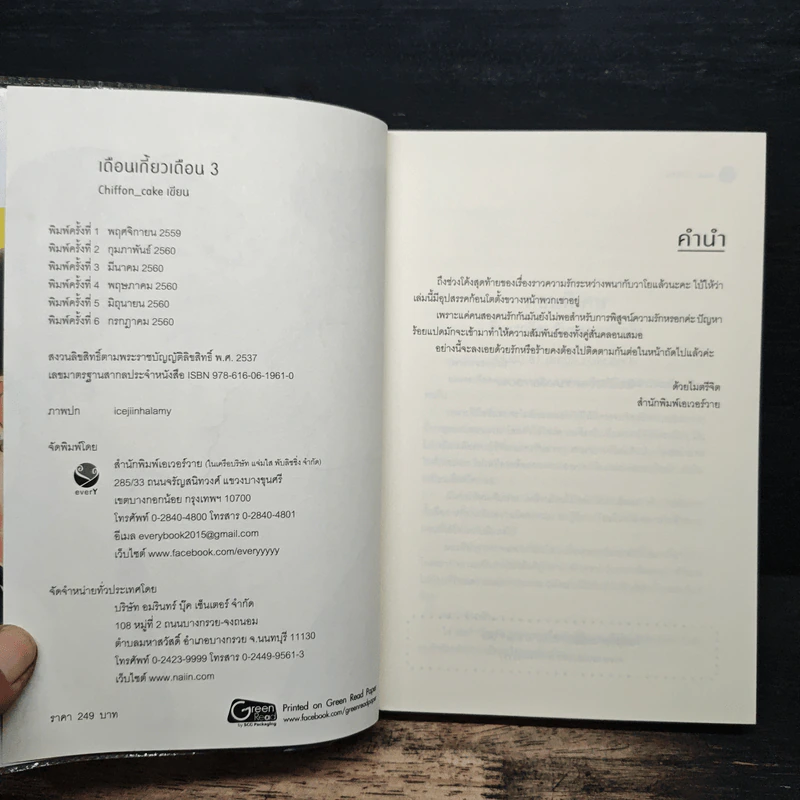 เดือนเกี้ยวเดือน 3
Chiffon_cake เขียน
พิมพ์ครั้งที่ 1 พฤศจิกายน 2559
พิมพ์ครั้งที่ 2 กุมภาพันธ์ 2560
พิมพ์ครั้งที่ 3 มีนาคม 2560
พิมพ์ครั้งที่ 4 พฤษภาคม 2560
พิมพ์ครั้งที่ 5 มิถุนายน 2560
พิมพ์ครั้งที่ 6 กรกฎาคม 2560
สงวนลิขสิทธิ์ตามพระราชบัญญัติลิขสิทธิ์ พ.ศ. 2537
เลขมาตรฐานสากลประจำหนังสือ ISBN 978-616-06-1961-0
ภาพปก icejiinhalamy
จัดพิมพ์โดย
everY
สำนักพิมพ์เอเวอร์วาย (ในเครือบริษัท แจ่มใส พับลิชชิ่ง จำกัด)
285/33 ถนนจรัญสนิทวงศ์ แขวงบางขุนศรี
เขตบางกอกน้อย กรุงเทพฯ 10700
โทรศัพท์ 0-2840-4800 โทรสาร 0-2840-4801
อีเมล everybook2015@gmail.com
เว็บไซต์ www.facebook.com/everyyyyy
จัดจำหน่ายทั่วประเทศโดย
บริษัท อมรินทร์ บุ๊ค เซ็นเตอร์ จำกัด
108 หมู่ที่ 2 ถนนบางกรวย-จงถนอม
ตำบลมหาสวัสดิ์ อำเภอบางกรวย จ.นนทบุรี 11130
โทรศัพท์ 0-2423-9999 โทรสาร 0-2449-9561-3
เว็บไซต์ www.naiin.com
ราคา 249 บาท
Green Read
by SCG Packaging
Printed on Green Read Paper
www.facebook.com/greenreadpaper
คำนำ
ถึงช่วงโค้งสุดท้ายของเรื่องราวความรักระหว่างพนากับวาโยแล้วนะคะ ใบ้ให้ว่า
เล่มนี้มีอุปสรรคก้อนโตตั้งขวางหน้าพวกเขาอยู่
เพราะแค่คนสองคนรักกันมันยังไม่พอสำหรับการพิสูจน์ความรักหรอกค่ะ ปัญหา
ร้อยแปดมักจะเข้ามาทำให้ความสัมพันธ์ของทั้งคู่สั่นคลอนเสมอ
อย่างนี้จะลงเอยด้วยรักหรือร้ายคงต้องไปติดตามกันต่อในหน้าถัดไปแล้วค่ะ
ด้วยไมตรีจิต
สำนักพิมพ์เอเวอร์วาย